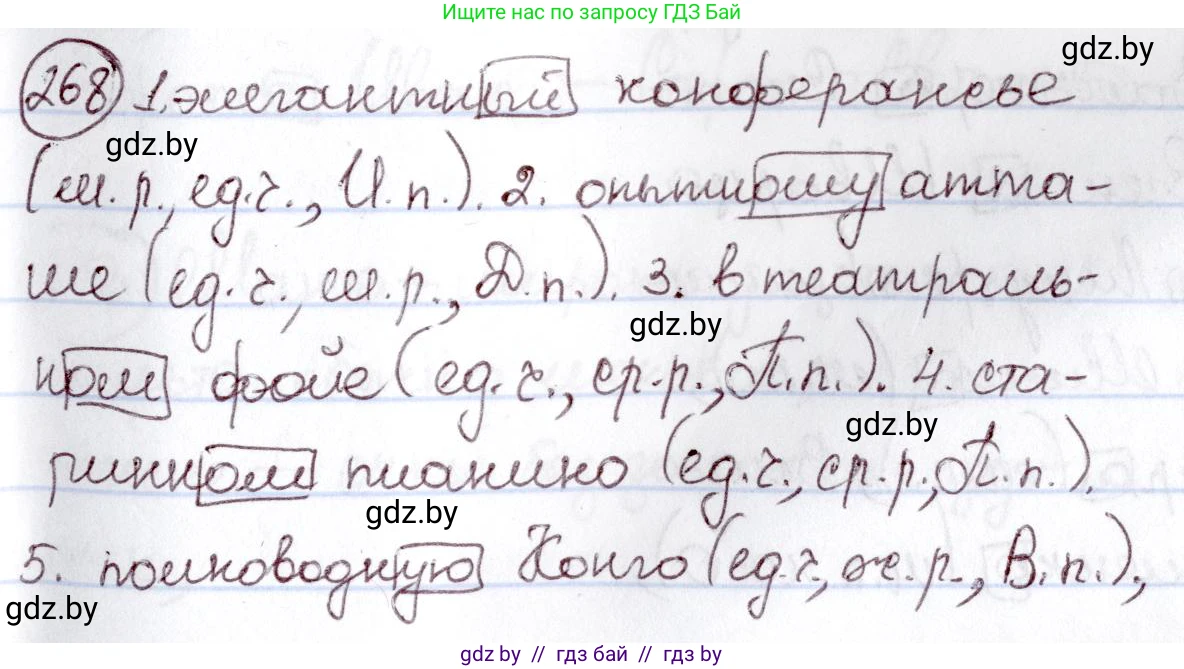 Ищите нас по запросу ГДЗ Бай
gdz.by
268 1. элегантный конферансье
gdz.by
(м. р., ед. ч., И. п.). 2. опытному атта-
ше (ед. ч., м. р., Д. п.). 3. в театраль-
gdz.by
ном фойе (ед. ч., ср. р., П. п.). 4. ста-
gdz.by
ринном пианино (ед. ч., ср. р., П. п.).
gdz.by
5. полноводную Конго (ед. ч., ж. р., В. п.),
gdz.by
gdz.by // гдз бай // гдз by